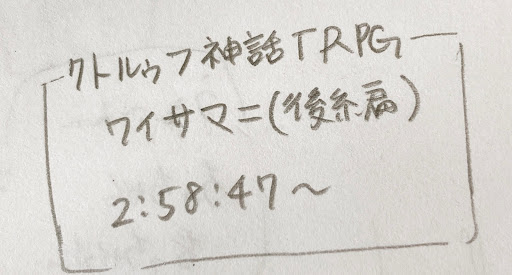 クトルゥフ神話TRPG
ワイサマニ(後編)
2:58:47〜